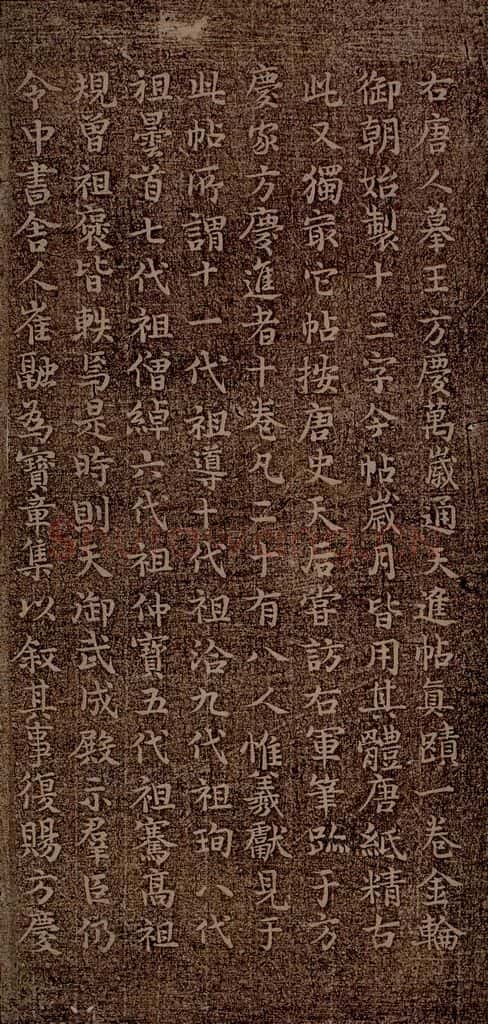 右唐人摹王方慶萬歲通天進帖真蹟一卷金輪
御朝始製十三字今帖歲月皆用其體唐紙精古
此又獨最它帖按唐史天后嘗訪右軍筆跡于方
慶家方慶進者十卷凡二十有八人惟羲獻見于
此帖所謂十一代祖導十代祖洽九代祖珣八代
祖曇首七代祖僧綽六代祖仲寶五代祖騫高祖
規曾祖褒皆軼焉是時則天御武成殿示羣臣仍
令中書舍人崔融為寶章集以敘其事復賜方慶